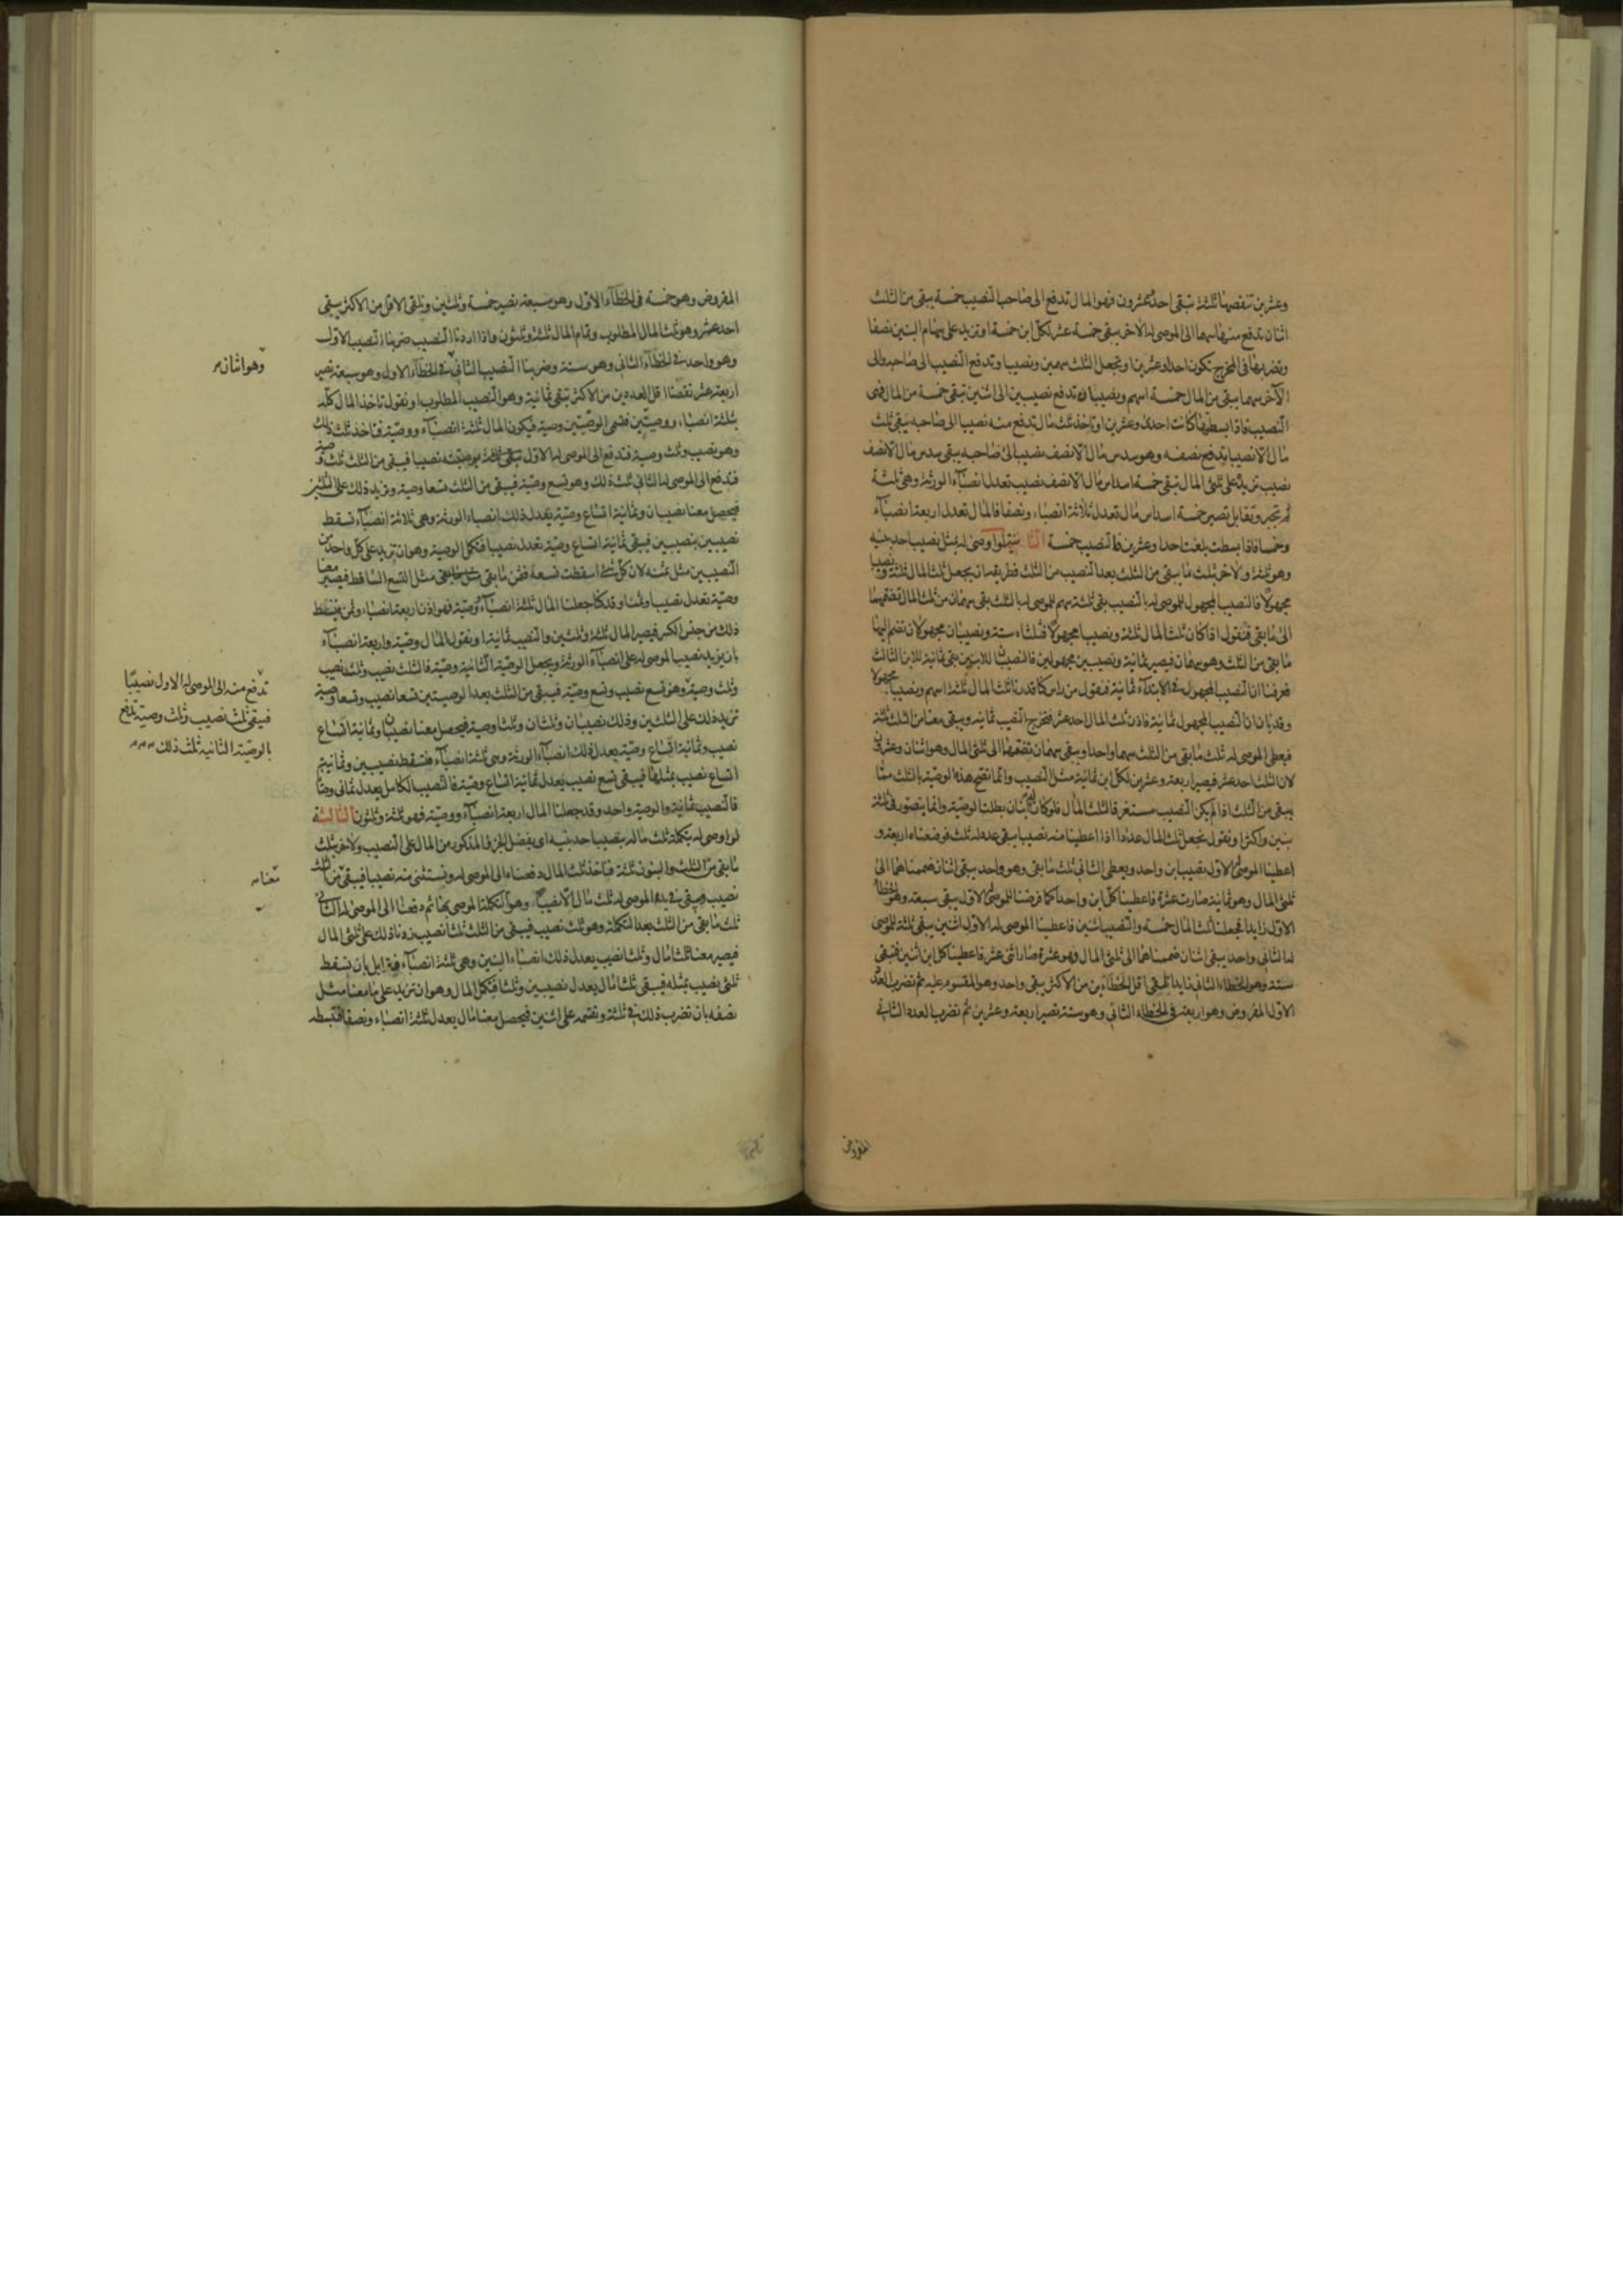 وعشرين تنقصها ثلثة تبقى احد وعشرون فهو المال تدفع الى صاحب النصيب خمسة يبقى من الثلث
اثنان تدفع منها سهما الى الموصى له الاخر يبقى خمسة عشر لكل ابن خمسة او تزيد على سهام البنين نصفا
وتضربها فى المخرج تكون احدا وعشرين او تجعل الثلث سهمين ونصيبا وتدفع النصيب الى صاحبه والى
الآخر سهما يبقى من المال خمسة اسهم ونصيبان تدفع نصيبين الى اثنين تبقى خمسة من المال فهى
النصيب فاذا بسطتها كانت احدى وعشرين او تاخذ ثلث مال تدفع منه نصيبا الى صاحبه يبقى ثلث
مال الا نصيبا تدفع نصفه وهو سدس مال الا نصف نصيب الى صاحبه يبقى سدس مال الا نصف
نصيب تزيد على ثلثى المال تبقى خمسة اسداس مال الا نصف نصيب تعدل انصباء الورثة وهى ثلثة
ثم تجبر وتقابل تصير خمسة اسداس مال تعدل ثلاثة انصباء ونصفا فالمال تعدل اربعة انصباء
وخمسا فاذا بسطت بلغت احدا وعشرين فالنصيب خمسة الثانية لو اوصى له بمثل نصيب احد بنيه
وهو ثلثة ولاخر بثلث ما يبقى من الثلث بعد النصيب من الثلث فطريقه ان يجعل ثلث المال ثلثة ونصيبا
مجهولا فالنصيب المجهول للموصى له بالنصيب بقى ثلثة سهم للموصى له بالثلث بقى سهمان من ثلث المال تضمهما
الى ما بقى فنقول اذا كان ثلث المال ثلثة ونصيبا مجهولا فثلثاه ستة ونصيبان مجهولان تضم اليها
ما بقى من الثلث وهو سهمان فيصير ثمانية ونصيبين مجهولين فالنصيبان للابنين بقى ثمانية للابن الثالث
فعرفنا ان النصيب المجهول فى الابتداء ثمانية فنقول من راس كنا قدرنا ثلث المال ثلثة اسهم ونصيبا مجهولا
وقد بان ان النصيب المجهول ثمانية فاذن ثلث المال احد عشر فتخرج النصيب ثمانية ويبقى معنا من الثلث ثلثة
فيعطى الموصى له ثلث ما بقى من الثلث سهما واحدا ويبقى سهمان تضمهما الى ثلثى المال وهو اثنان وعشرون
لان الثلث احد عشر فيصير اربعة وعشرين لكل ابن ثمانية مثل النصيب وانما تصح هذه الوصية بالثلث مما
يبقى من الثلث اذا لم يكن النصيب مستغرقا لثلث المال فلو كان ابنان بطلت الوصية وانما يتصور فى ثلثة
بنين واكثر او نقول نجعل ثلث المال عددا اذا اعطينا منه نصيبا يبقى عدد له ثلث فوضعناه اربعة و
اعطينا الموصى الاول نصيب ابن واحد ويعطى الثانى ثلث ما بقى وهو واحد يبقى اثنان ضممناهما الى
ثلثى المال وهو ثمانية صارت عشرة فاعطينا كل ابن واحدا كما فرضنا للموصى الاول يبقى سبعة وهو الخطاء
الاول زايدا فجعلنا ثلث المال خمسة والنصيب اثنين فاعطينا الموصى له الاول اثنين يبقى ثلثة للموصى
له الثانى واحد يبقى اثنان ضممناهما الى ثلثى المال وهو عشرة صار اثنى عشر فاعطينا كل ابن اثنين فتبقى
ستة وهو الخطاء الثانى زايدا تلقى اقل الخطاءين من الاكثر يبقى واحد وهو المقسوم عليه ثم تضرب العدد
الاول المفروض وهو اربعة فى الخطاء الثانى وهو ستة تصير اربعة وعشرين ثم تضرب العدد الثانى
المفروض
المفروض وهو خمسة فى الخطاء الاول وهو سبعة تصير خمسة وثلثين وتلقى الاقل من الاكثر يبقى
احد عشر وهو ثلث المال المطلوب وتمام المال ثلثة وثلثون واذا اردنا النصيب ضربنا النصيب الاول
وهو واحد فى الخطاء الثانى وهو ستة وضربنا النصيب الثانى فى الخطاء الاول وهو سبعة تصير
وهو اثنان
اربعة عشر نقصنا اقل العددين من الاكثر تبقى ثمانية وهو النصيب المطلوب او نقول تاخذ المال كله
بثلثة انصباء ووصيتين فنسمى الوصيتين وصية فيكون المال ثلثة انصباء ووصية فتاخذ ثلث ذلك
وهو نصيب وثلث وصية فتدفع الى الموصى له الاول نصيبا فيبقى من الثلث ثلث وصية
فتدفع الى الموصى له الثانى ثلث ذلك وهو تسع وصية فيبقى من الثلث تسعا وصية وتزيد ذلك على الثلثين
فيحصل معنا نصيبان وثمانية اتساع وصية يعدل ذلك انصباء الورثة وهى ثلاثة انصباء تسقط
نصيبين بنصيبين فيبقى ثمانية اتساع وصية تعدل نصيبا فتكمل الوصية وهو ان تزيد على كل واحد من
النصيبين مثل ثمنه لان كل شىء اسقطت تسعه فثمن ما بقى مثل التسع الساقط فيصير معنا
وصية تعدل نصيبا وثمنا وقد كنا جعلنا المال ثلثة انصباء ووصية فهو اذن اربعة انصباء وثمن فيبسط
ذلك من جنس الكسر فيصير المال ثلثة وثلثين والنصيب ثمانية او نقول المال وصية واربعة انصباء
بان يزيد نصيب الموصى له على انصباء الورثة ويجعل الوصية الثانية وصية فالثلث نصيب وثلث نصيب
وثلث وصية وهو تسع نصيب وتسع وصية فيبقى من الثلث بعد الوصيتين تسعا نصيب وتسعا وصية
تدفع منه الى الموصى له الاول نصيبا
فيبقى ثلث نصيب وثلث وصية تدفع
بالوصية الثانية ثلث ذلك
تزيد ذلك على الثلثين وذلك نصيبان وثلثان وثلثا وصية فيحصل معنا نصيبان وثمانية اتساع
نصيب وثمانية اتساع وصية يعدل ذلك انصباء الورثة وهى ثلثة انصباء فتسقط نصيبين وثمانية
اتساع نصيب بمثلها فيبقى تسع نصيب يعدل ثمانية اتساع وصية فالنصيب الكامل يعدل ثمانى وصايا
فالنصيب ثمانية والوصية واحد وقد جعلنا المال اربعة انصباء ووصية فهو ثلثة وثلثون الثالثة
لو اوصى له بتكملة ثلث ماله بنصيب احد بنيه اى بفضل الجزء المذكور من المال على النصيب ولاخر بثلث
ما بقى من الثلث والبنون ثلثة فتاخذ ثلث المال دفعناه الى الموصى له ونستثنى منه نصيبا فيبقى من الثلث
معنا
نصيب ويبقى فى يد الموصى له ثلث مال الا نصيبا وهو التكملة الموصى بها ثم دفعنا الى الموصى له الثانى
ثلث ما بقى من الثلث بعد التكملة وهو ثلث نصيب فيبقى من الثلث ثلثا نصيب زدنا ذلك على ثلثى المال
فيصير معنا ثلثا مال وثلثا نصيب يعدل ذلك انصباء البنين وهى ثلثة انصباء فقابل بان تسقط
ثلثى نصيب بمثله فيبقى ثلثا مال يعدل نصيبين وثلثا فتكمل المال وهو ان تزيد على ما معنا مثل
نصفه بان تضرب ذلك فى ثلثة وتقسمه على اثنين فيحصل معنا مال يعدل ثلثة انصباء ونصفا فتبسطه